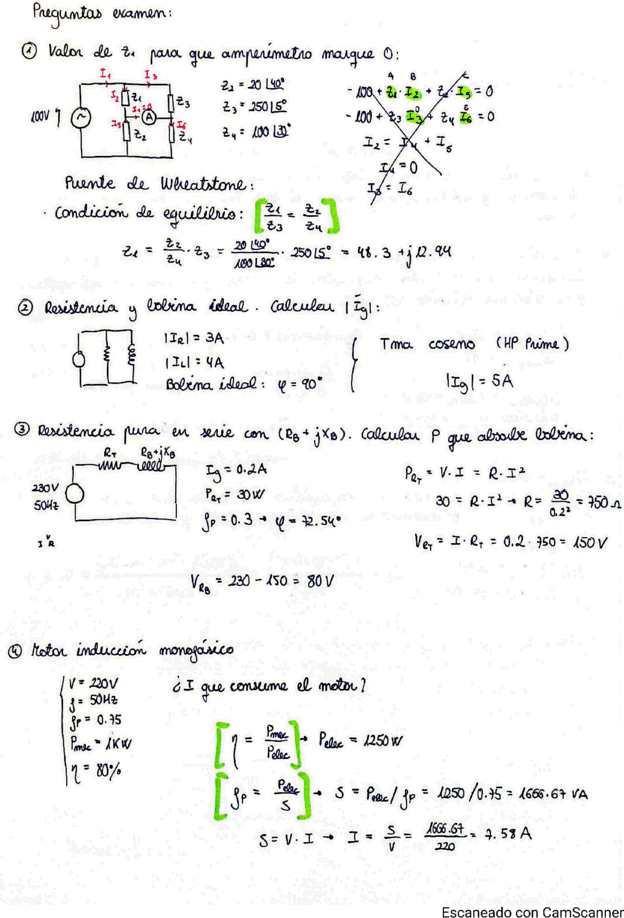 Preguntas examen:
① Valor de Z₁ para que amperímetro marque 0:
I₁ I₃
I₂ Z₁ Z₃
100V A
I₅ Z₂ I₆ Z₄
Z₂ = 20∠40°
Z₃ = 250∠5°
Z₄ = 100∠30°
A B C
-100 + Z₁ · I₂ + Z₂ · I₅ = 0
-100 + Z₃ I₃ + Z₄ I₆ = 0
I₂ = I₄ + I₅
I₄ = 0
I₃ = I₆
Puente de Wheatstone:
· Condición de equilibrio: [Z₁/Z₃ = Z₂/Z₄]
Z₁ = Z₂/Z₄ · Z₃ = 20∠40°/100∠30° · 250∠5° = 48.3 + j12.94
② Resistencia y bobina ideal. Calcular |Ig|:
|I_R| = 3A
|I_L| = 4A
Bobina ideal: φ = 90°
Tma coseno (HP Prime)
|Ig| = 5A
③ Resistencia pura en serie con (R_B + jX_B). Calcular P que absorbe bobina:
R_T R_B+jX_B
230V
50Hz
Ig = 0.2A
P_RT = 30W
fp = 0.3 → φ = 72.54°
P_RT = V · I = R · I²
30 = R · I² → R = 30/0.2² = 750 Ω
V_RT = I · R_T = 0.2 · 750 = 150V
V
I R
V_RB = 230 - 150 = 80V
④ Motor inducción monofásico
V = 220V
f = 50Hz
fp = 0.75
Pmec = 1KW
η = 80%
¿I que consume el motor?
[η = Pmec/Pelec] → Pelec = 1250W
[fp = Pelec/S] → S = Pelec / fp = 1250 / 0.75 = 1666.67 VA
S = V · I → I = S/V = 1666.67/220 = 7.58 A
Escaneado con CamScanner